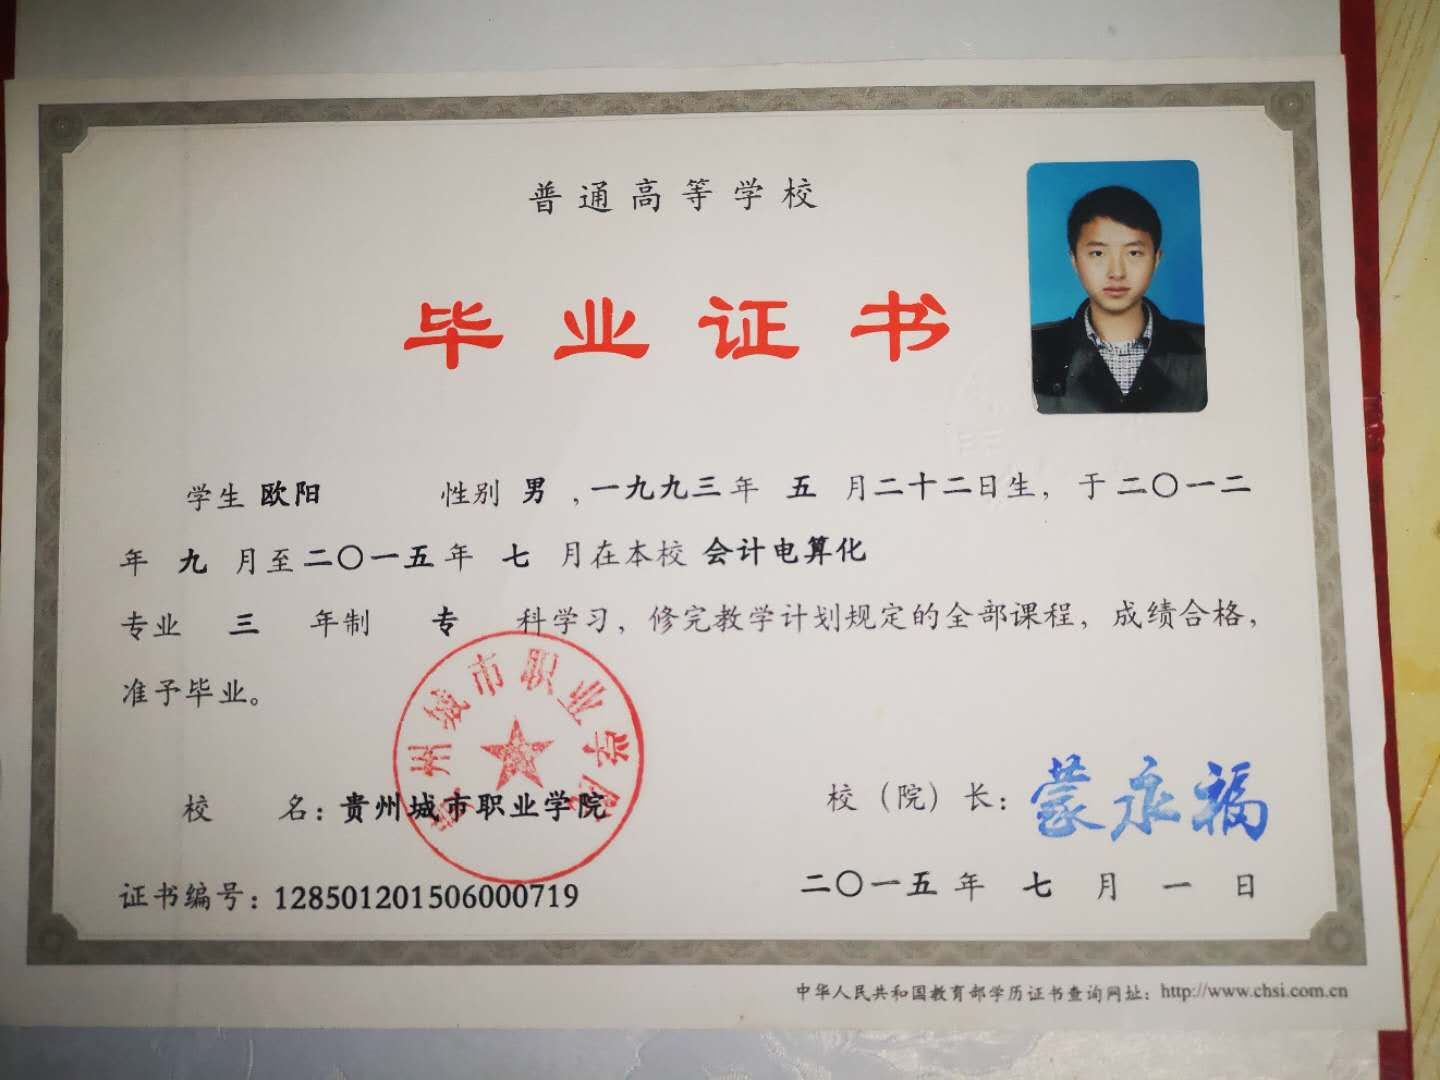 普通高等学校
毕业证书
学生 欧阳 性别 男 ,一九九三年 五 月二十二日生，于二〇一二
年 九 月至二〇一五年 七 月在本校 会计电算化
专业 三 年制 专 科学习，修完教学计划规定的全部课程，成绩合格，
准予毕业。
贵州城市职业学院
校 名：贵州城市职业学院
校（院）长：蒙永福
证书编号：128501201506000719
二〇一五年 七 月 一 日
中华人民共和国教育部学历证书查询网址：http://www.chsi.com.cn